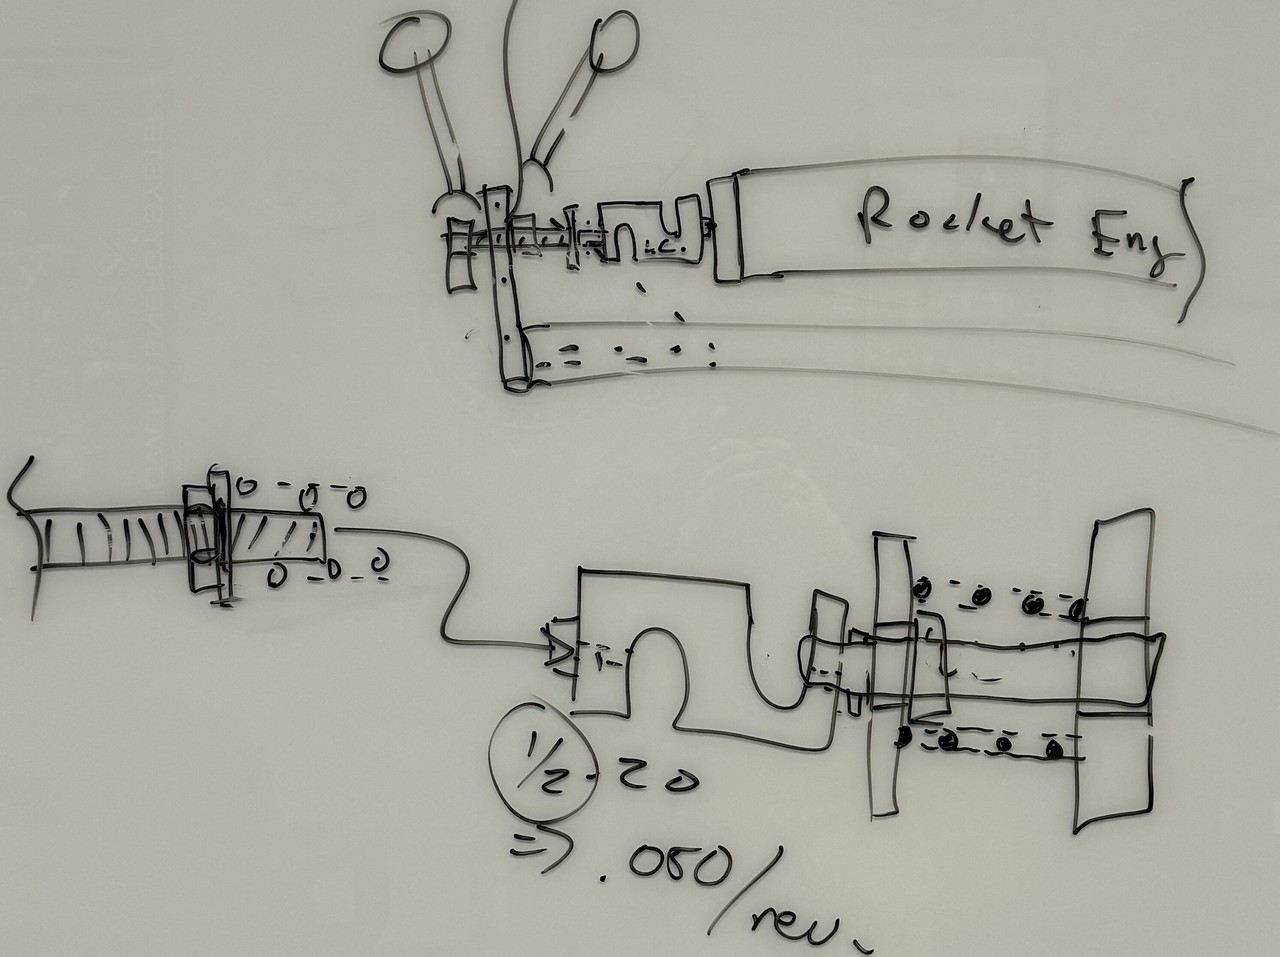 Rocket Eng
L.C.
1/2-20
=> .050/rev.